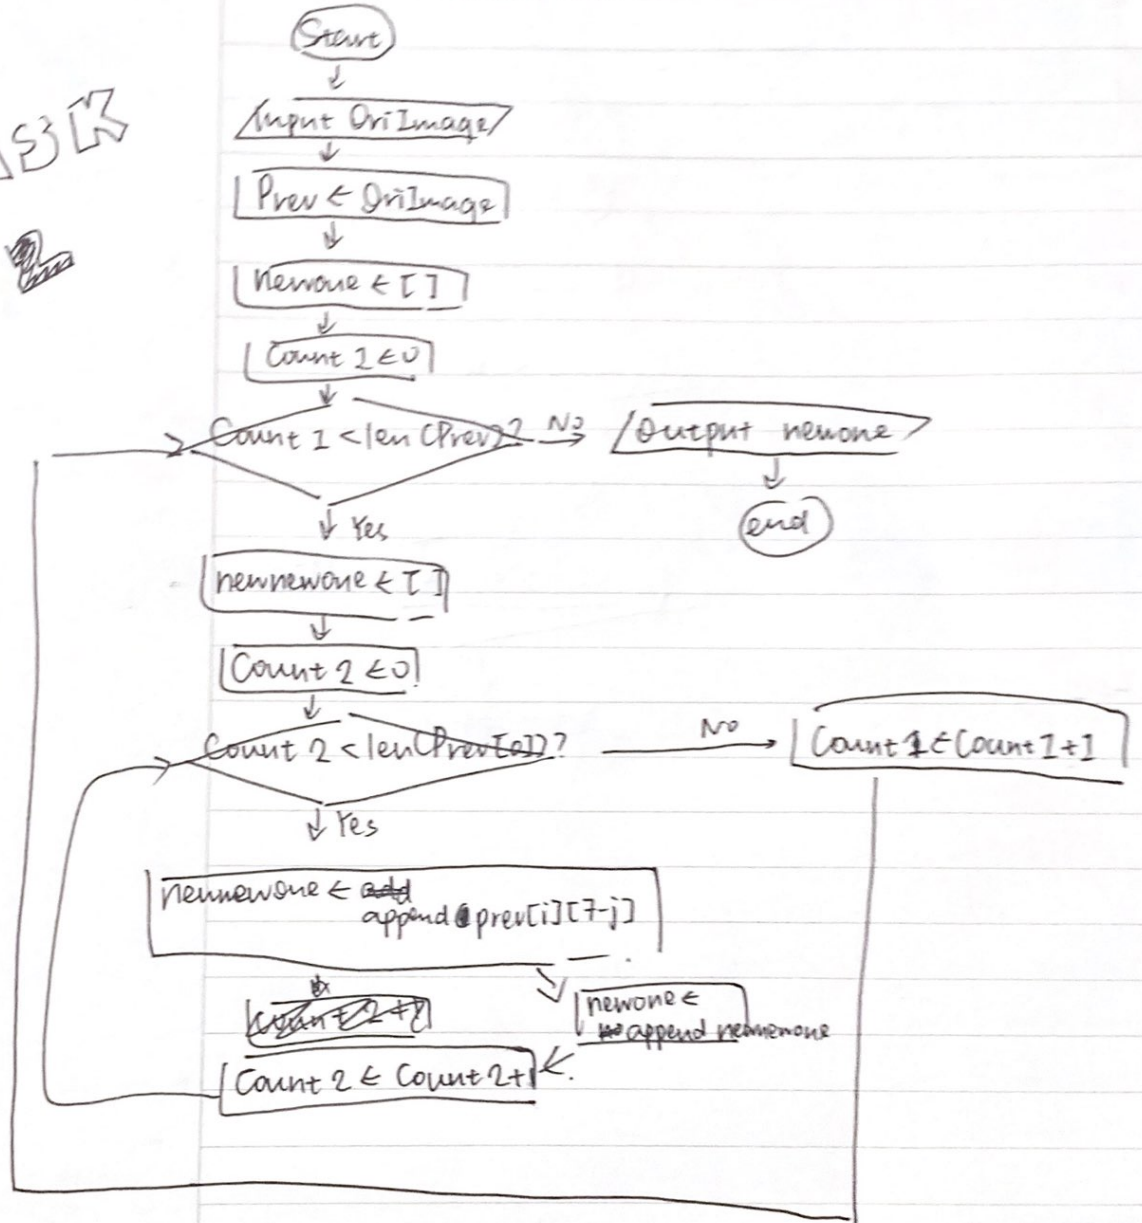 Start
ASK
2
Input OriImage
Prev ← OriImage
newone ← [ ]
Count 1 ← 0
Count 1 < len(Prev)?
No
Output newone
end
Yes
newnewone ← [ ]
Count 2 ← 0
Count 2 < len(Prev[0])?
No
Count 1 ← Count 1+1
Yes
newnewone ← add
append prev[i][7-j]
newone ←
append newnewone
Count 2 ← Count 2+1